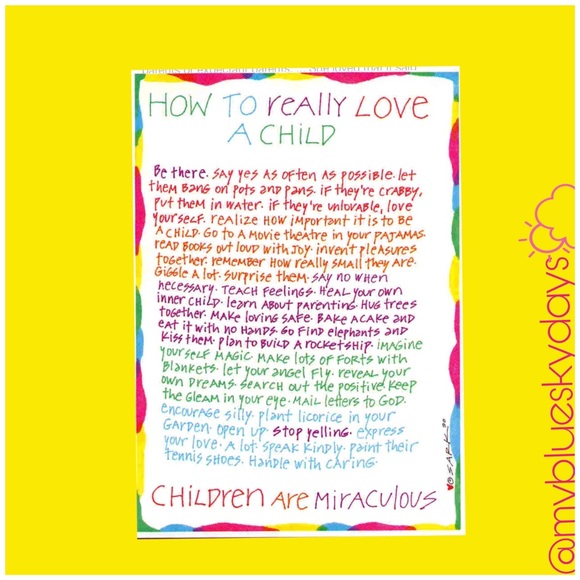 HOW TO REALLY LOVE
A CHILD
Be there. Say yes as often as possible. Let
them bang on pots and pans. If they're crabby,
put them in water. If they're unlovable, love
yourself. Realize how important it is to be
a child. Go to a movie theatre in your pajamas.
Read books out loud with joy. Invent pleasures
together. Remember how really small they are.
Giggle a lot. Surprise them. Say no when
necessary. Teach feelings. Heal your own
inner child. Learn about parenting. Hug trees
together. Make loving safe. Bake a cake and
eat it with no hands. Go find elephants and
kiss them. Plan to build a rocketship. Imagine
yourself magic. Make lots of forts with
blankets. Let your angel fly. Reveal your
own dreams. Search out the positive. Keep
the gleam in your eye. Mail letters to God.
Encourage silly. Plant licorice in your
garden. Open up. Stop yelling. Express
your love. A lot. Speak kindly. Paint their
tennis shoes. Handle with caring.
SARK
CHILDREN ARE MIRACULOUS
@myblueskydays